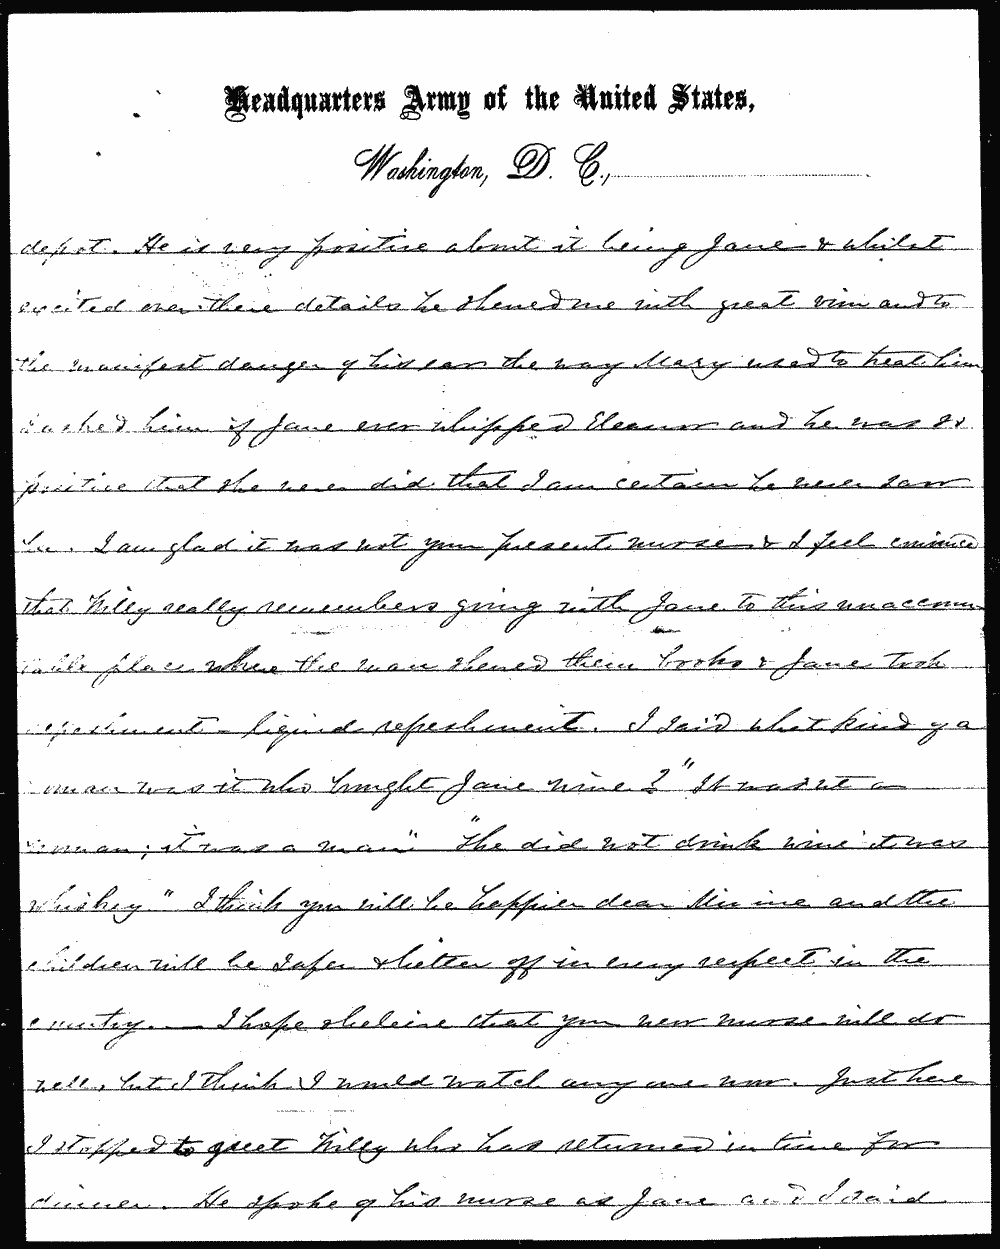 Headquarters Army of the United States,
Washington, D. C.,
depot. He is very positive about it being Jane & whilst
excited over these details he showed me with great vim and to
the manifest danger of his ear the way Mary used to treat him
I asked him if Jane ever whipped Eleanor and he was so
positive that she never did that I am certain he never saw
her. I am glad it was not your present nurse & I feel convinced
that Willy really remembers going with Jane to this unaccoun-
table place where the man showed them books & Jane took
refreshment - liquid refreshment. I said what kind of a
woman was it who bought Jane wine?" It was not a
woman; it was a man" "She did not drink wine it was
whiskey." I think you will be happier dear Minnie and the
children will be safer & better off in every respect in the
country. — I hope & believe that your new nurse will do
well, but I think I would watch any one now. Just here
I stopped to greet Willy who has returned in time for
dinner. He spoke of his nurse as Jane and I said